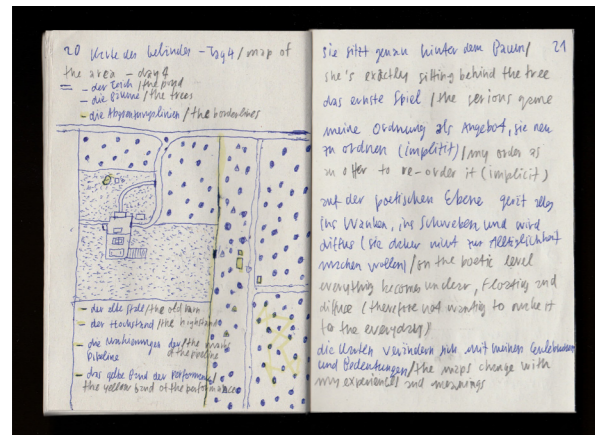 20 Karte des Geländes - Day 4 / map of
the area - day 4
- der Teich / the pond
- die Bäume / the trees
- die Abgrenzungslinien / the borderlines
- der alte Stall / the old barn
- der Hochstand / the highstand
- die Markierungen der / the marks
Pipeline of the pipeline
- das gelbe Band der Performance
the yellow band of the performance
21
sie sitzt genau hinter dem Baum /
she's exactly sitting behind the tree
das ernste Spiel / the serious game
meine Ordnung als Angebot, sie neu
zu ordnen (implizit) / my order as
an offer to re-order it (implicit)
auf der poetischen Ebene gerät alles
ins Wanken, ins Schweben und wird
diffus (sie daher nicht zur Alltäglichkeit
machen wollen) / on the poetic level
everything becomes unclear, floating and
diffuse (therefore not wanting to make it
for the everyday)
die Karten verändern sich mit meinen Erlebnissen
und Bedeutungen / the maps change with
my experiences and meanings